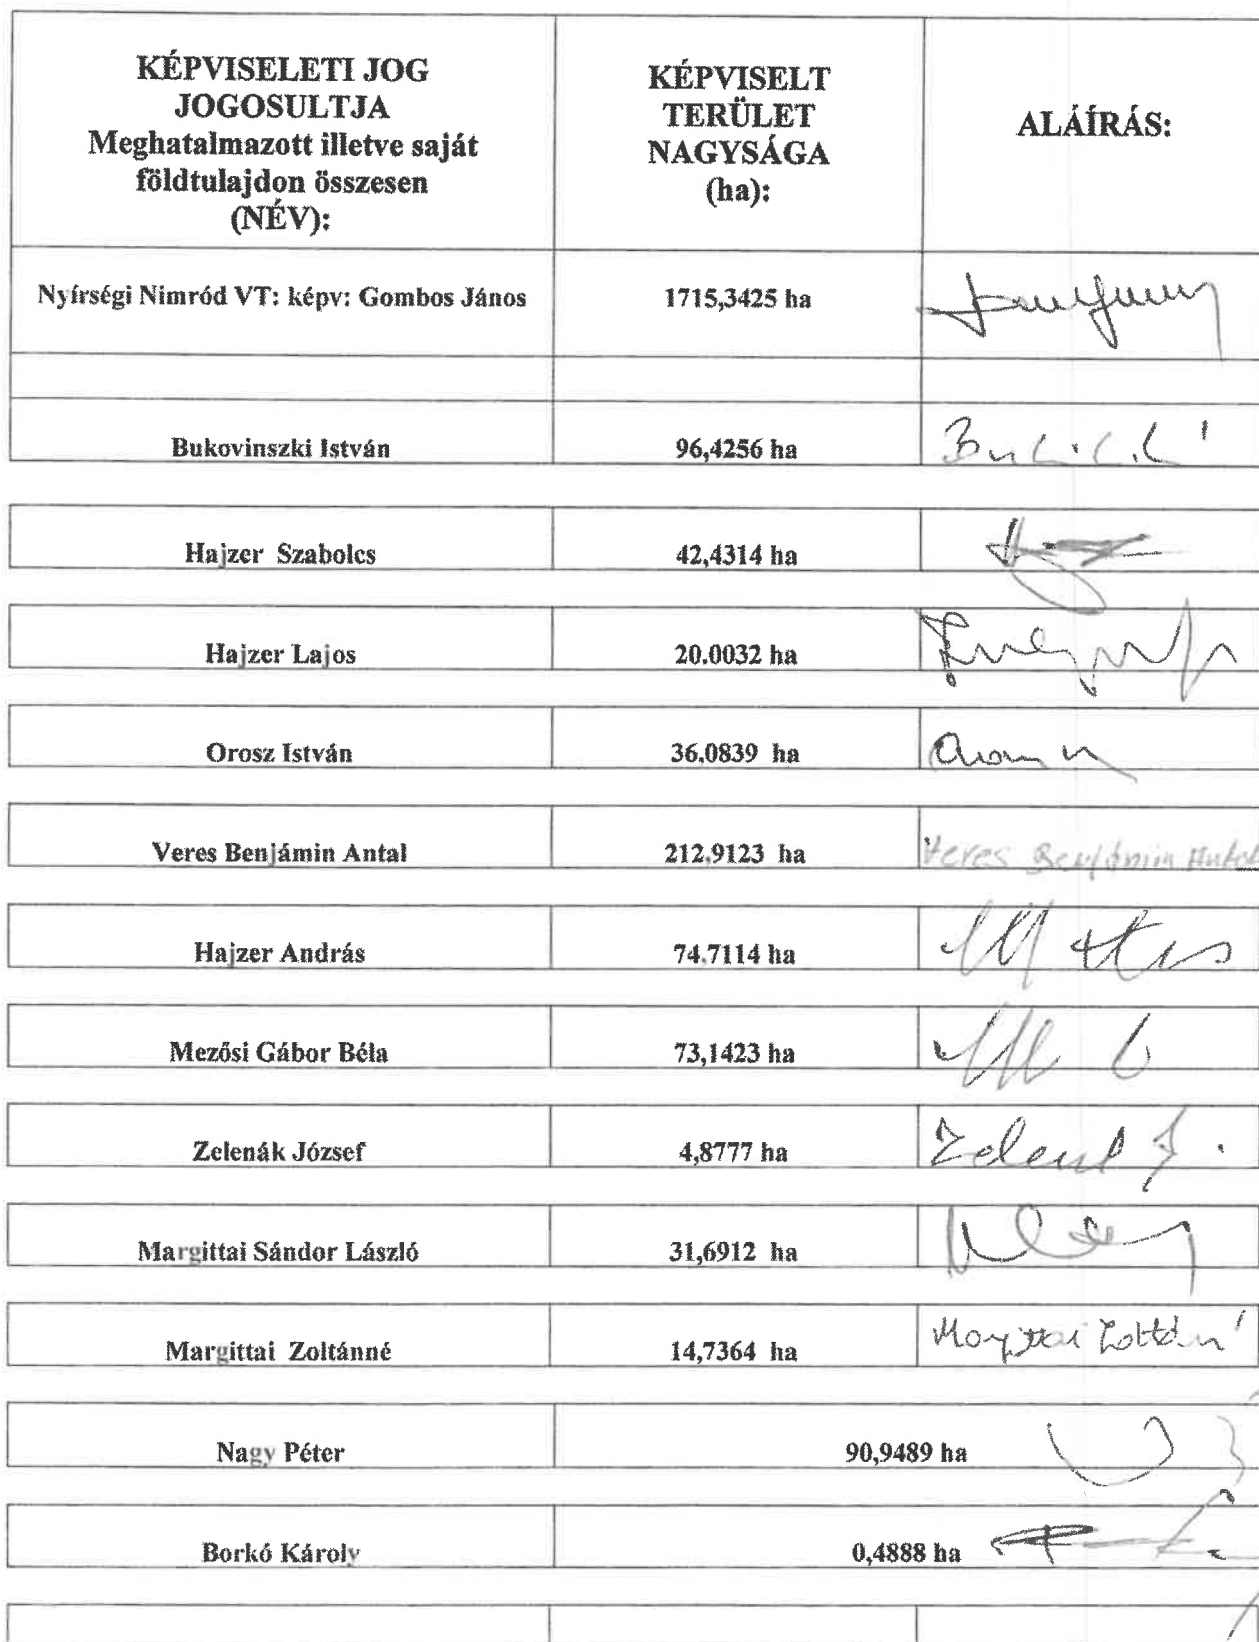 KÉPVISELETI JOG
JOGOSULTJA
Meghatalmazott illetve saját
földtulajdon összesen
(NÉV):
KÉPVISELT
TERÜLET
NAGYSÁGA
(ha):
ALÁÍRÁS:
Nyírségi Nimród VT: képv: Gombos János 1715,3425 ha
Bukovinszki István 96,4256 ha
Hajzer Szabolcs 42,4314 ha
Hajzer Lajos 20.0032 ha
Orosz István 36.0839 ha
Veres Benjámin Antal 212.9123 ha Veres Benjámin Antal
Hajzer András 74.7114 ha
Mezősi Gábor Béla 73,1423 ha
Zelenák József 4,8777 ha
Margittai Sándor László 31,6912 ha
Margittai Zoltánné 14,7364 ha Margittai Zoltánné
Nagy Péter 90,9489 ha
Borkó Károly 0,4888 ha